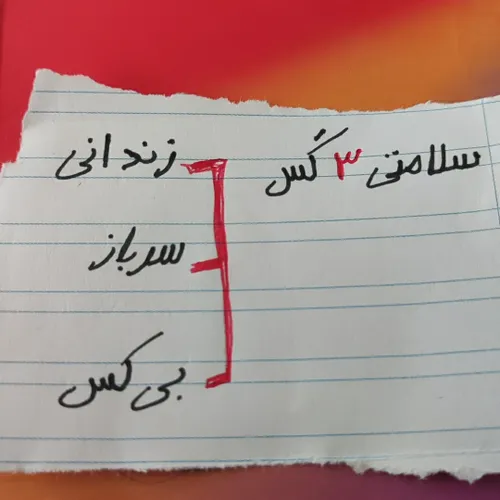 سلامتی ۳ کَس
زندانی
سرباز
بی کس